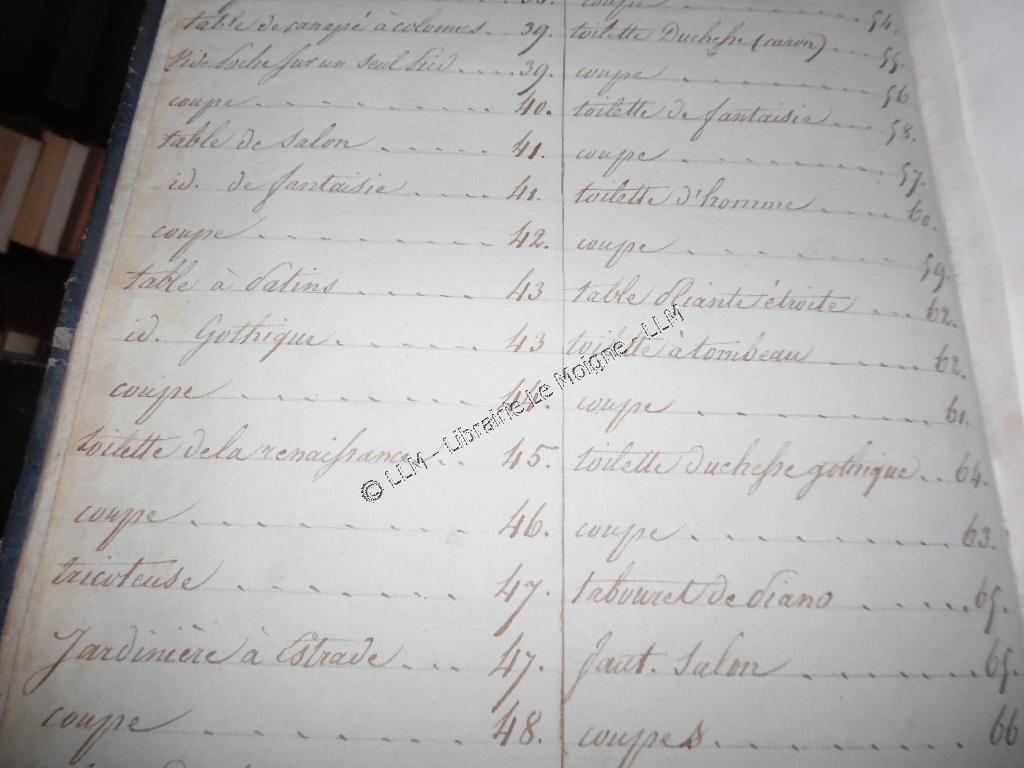 coupe 54.
table de canapé à colonnes. 39.
Vide Poche sur un seul Pied 39.
coupe 40.
table de salon 41.
id. de fantaisie 41.
coupe 42.
table à Patins 43
id. Gothique 43
coupe 44.
toilette de la renaissance 45.
coupe 46.
tricoteuse 47.
Jardinière à Estrade 47.
coupe 48.
toilette Duchesse (caron) 55.
coupe 56
toilette de fantaisie 58.
coupe 57.
toilette d'homme 60.
coupe 59.
table Pliante étroite 62.
toilette à tombeau 62.
coupe 61.
toilette duchesse gothique 64.
coupe 63.
tabouret de Piano 65.
faut. salon 65.
coupes 66
© LLM - Librairie Le Moigne - LLM